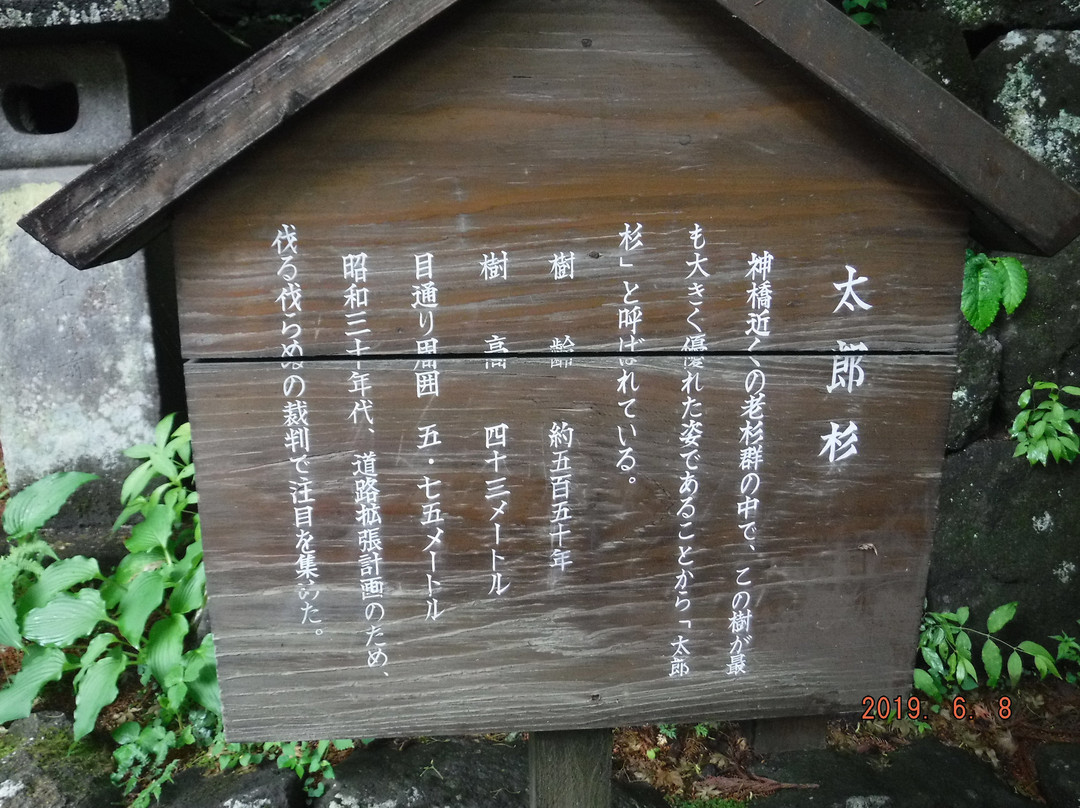 太郎杉
神橋近くの老杉群の中で、この樹が最
も大きく優れた姿であることから「太郎
杉」と呼ばれている。
樹齢 約五百五十年
樹高 四十三メートル
目通り周囲 五・七五メートル
昭和三十年代、道路拡張計画のため、
伐る伐らぬの裁判で注目を集めた。
2019. 6. 8